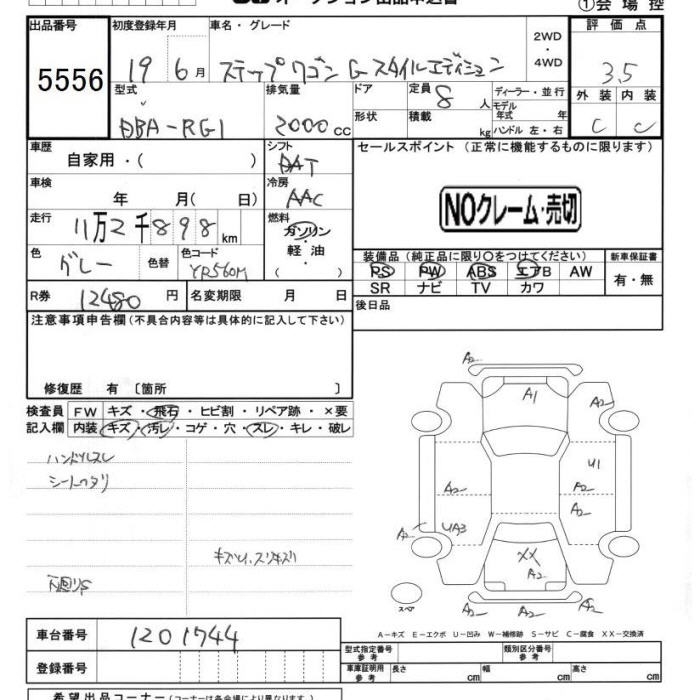 ①会場控
出品番号
初度登録年月
車名・グレード
評価点
5556
19 6月
ステップワゴン Gスタイルエディション
2WD・4WD
3.5
型式
排気量
ドア
定員 8 人
ディーラー・並行
外装 内装
モデル年式 年
DBA-RG1
2000cc
形状
積載 kg
ハンドル 左・右
C C
車歴
シフト
セールスポイント(正常に機能するものに限ります)
自家用・( )
DAT
車検
冷房
年 月( 日)
AAC
NOクレーム・売切
走行
11万2千898km
燃料
ガソリン・軽油・( )
色
グレー
色替
色コード
YR560M
装備品(純正品に限り○をつけてください)
新車保証書
PS PW ABS エアB AW
有・無
SR ナビ TV カワ
R券 12480円
名変期限 月 日
後日品
注意事項申告欄(不具合内容等は具体的に記入して下さい)
修復歴 有 〔箇所 〕
検査員記入欄
FW キズ・飛石・ヒビ割・リペア跡・×要
内装 キズ・汚レ・コゲ・穴・スレ・キレ・破レ
ハンドルスレ
シートヘタリ
キズ凹、スリキズ
下回りS
A2
A1
A2
U1
A2
A2
A2
A2
UA3
XX
A2
A2
スペア
A-キズ E-エクボ U-凹み W-補修跡 S-サビ C-腐食 XX-交換済
車台番号 1201744
型式指定番号 参考
類別区分番号 参考
登録番号
車庫証明用 参考
長さ cm
幅 cm
高さ cm
希望出品コーナー(コーナーは各会場により異なります。)